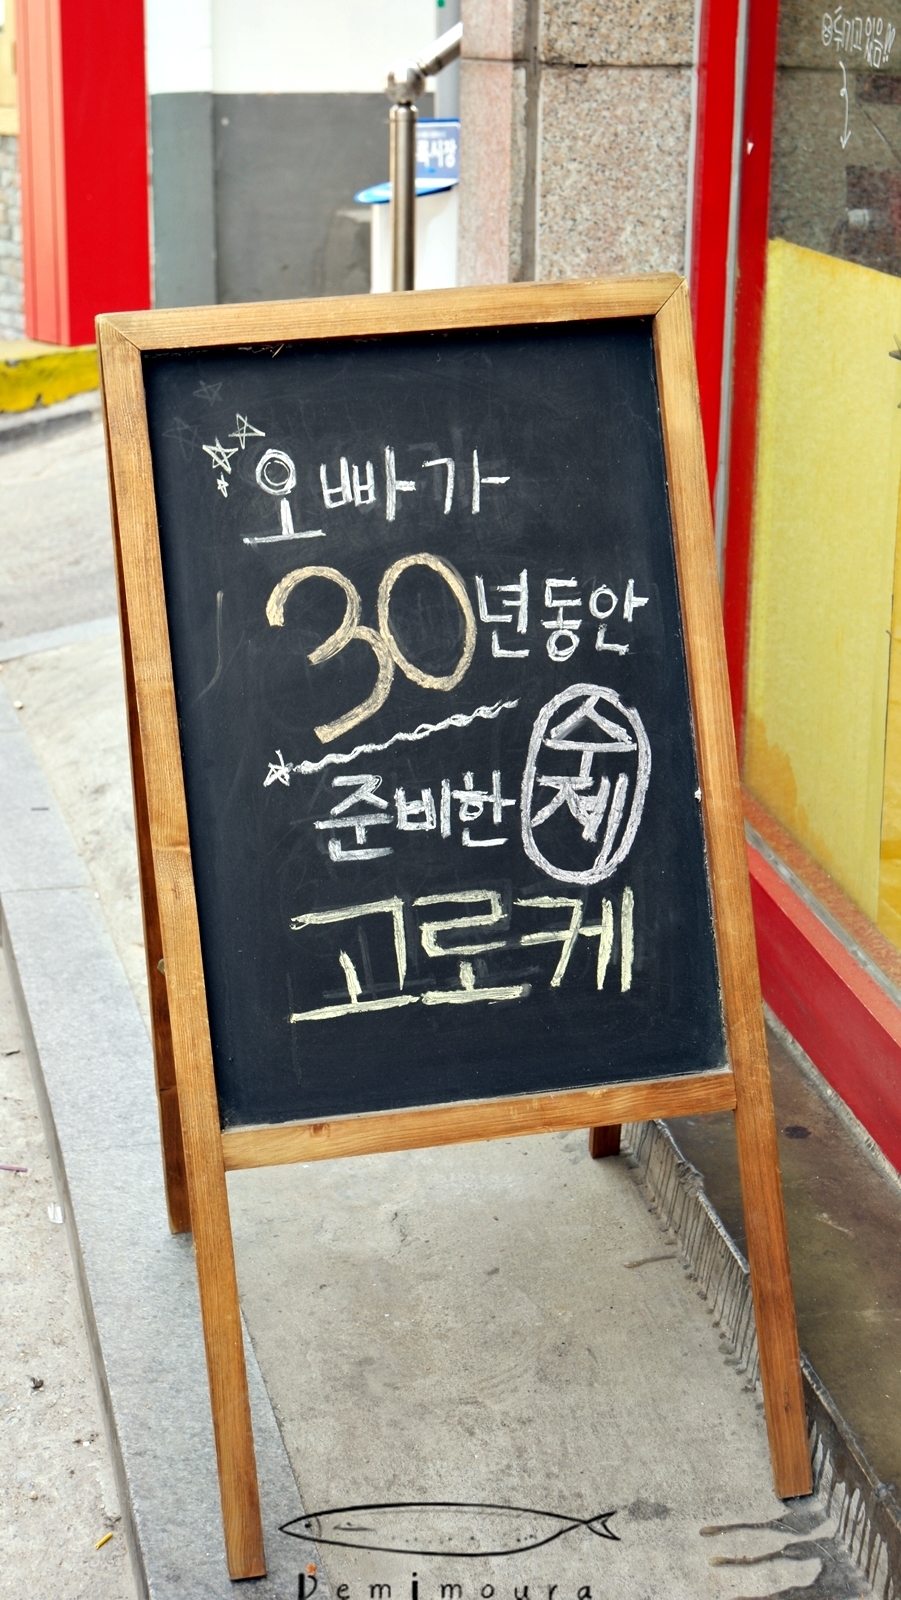 튀기고 있음!!
록시장
오빠가
30년동안
준비한 수제
고로케
Demimoura